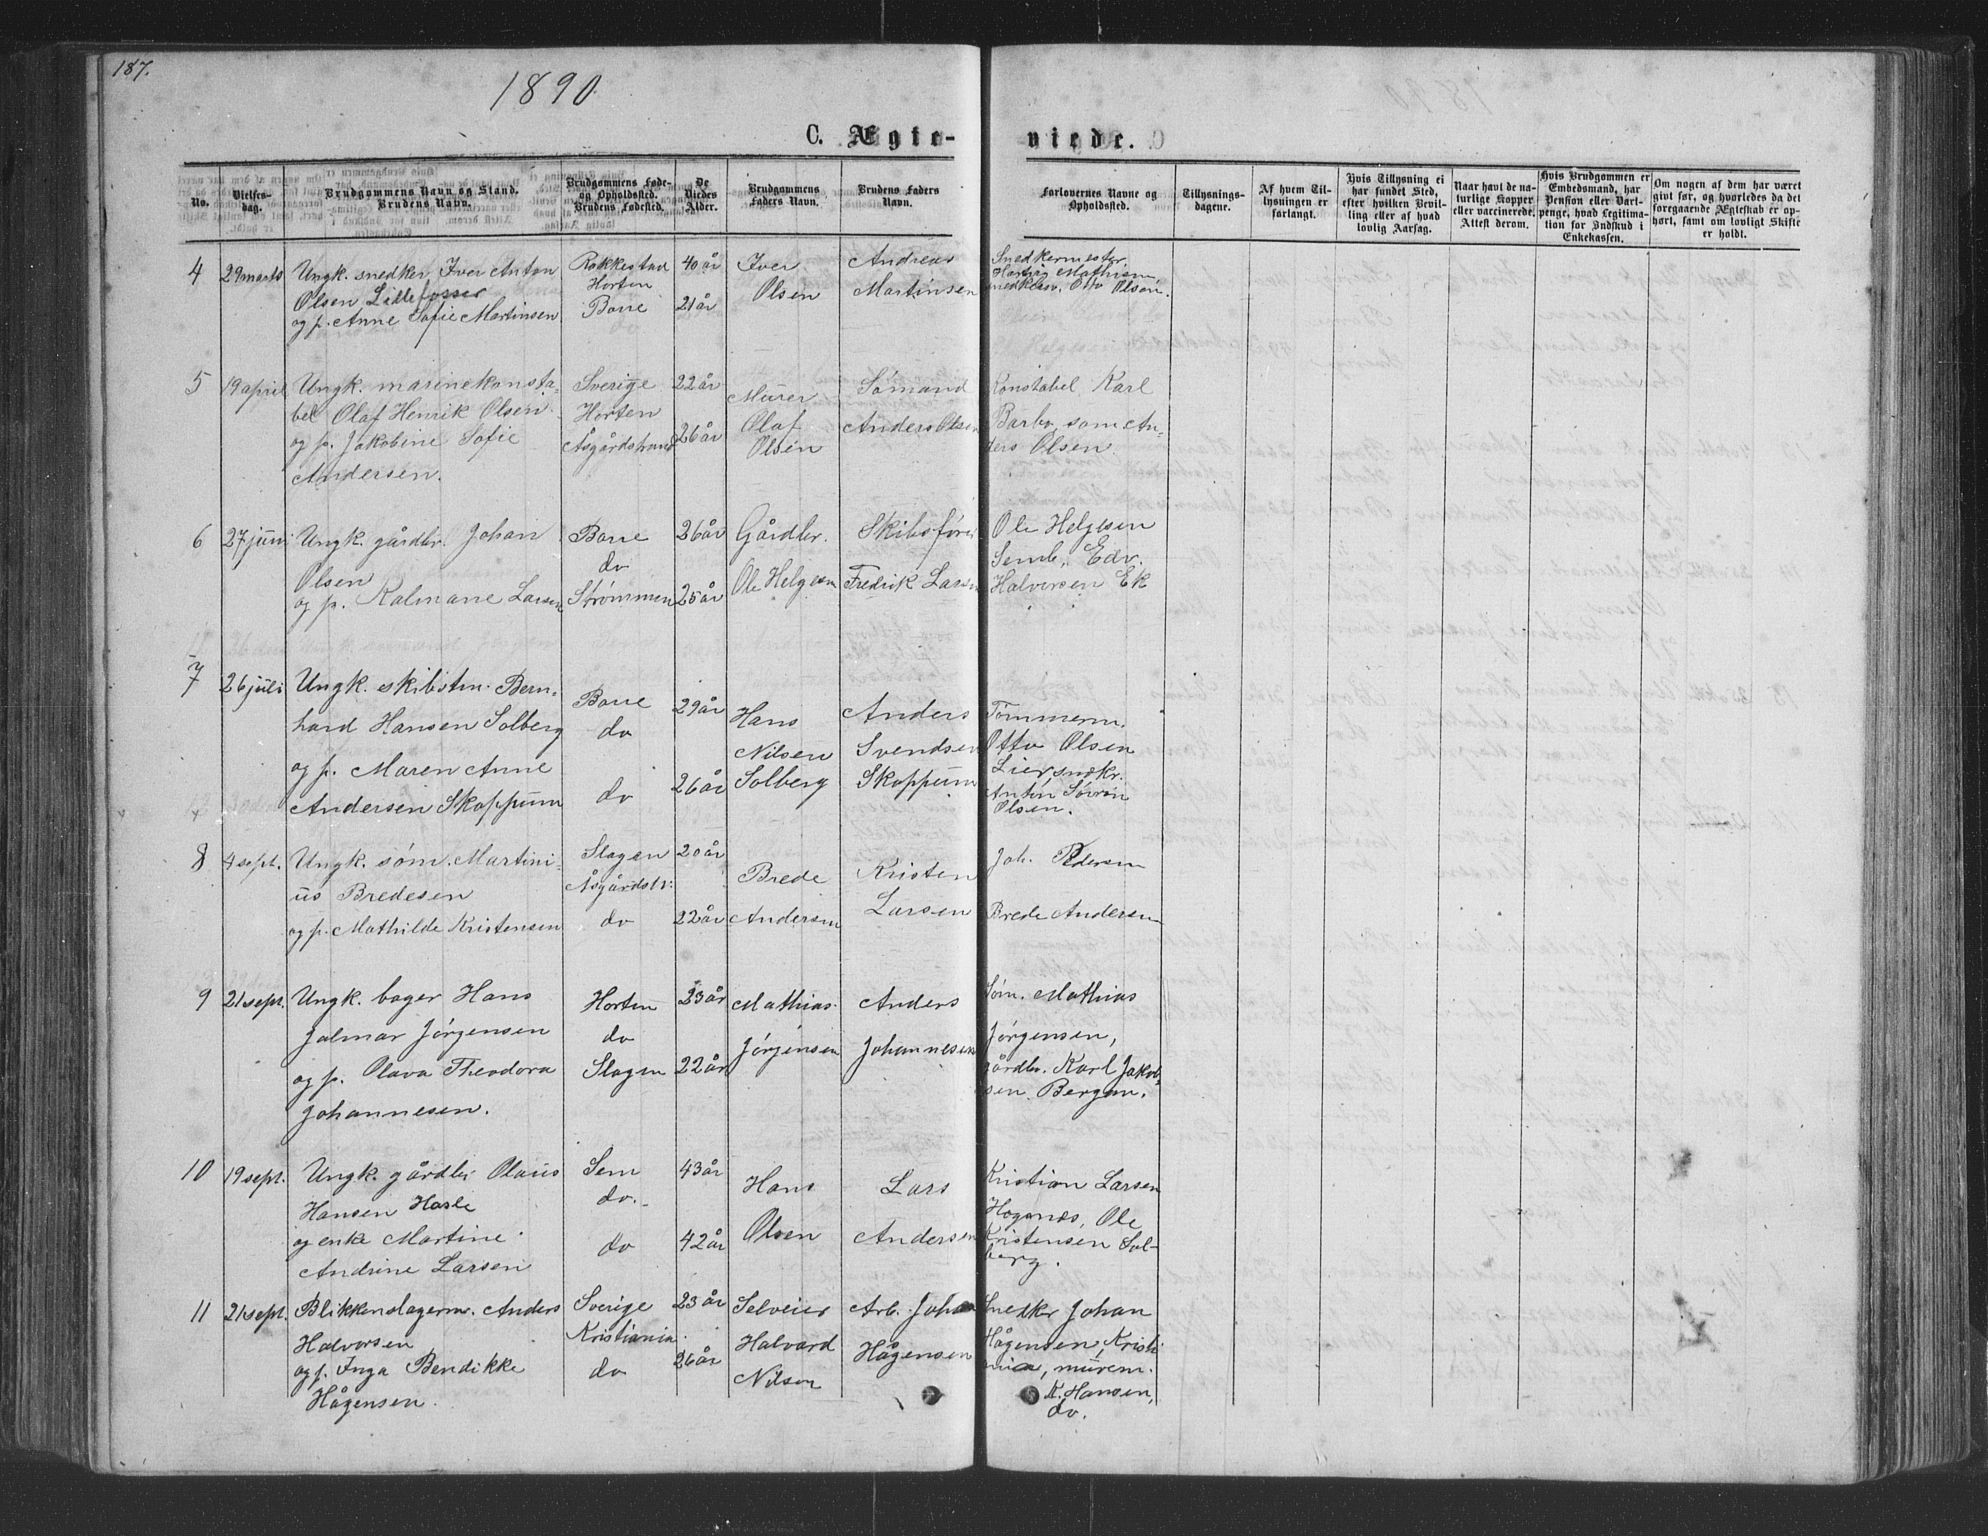 187.
1890
C. Ægte-
viede.
No.
Vielses-
dag.
Brudgommens Navn og Stand.
Brudens Navn.
Brudgommens Føde-
og Opholdssted.
Brudens Fødested.
De
Viedes
Alder.
Brudgommens
Faders Navn.
Brudens Faders
Navn.
Forlovernes Navne og
Opholdssted.
Tillysnings-
dagene.
Af hvem Til-
lysningen er
forlangt.
Hvis Tillysning ei
har fundet Sted,
efter hvilken Bevil-
ling eller af hvad
lovlig Aarsag.
Naar havt de na-
turlige Kopper
eller vaccinerede.
Attest derom.
Hvis Brudgommen er
Embedsmand, har
Pension eller Vart-
penge, hvad Legitima-
tion for Indskud i
Enkekassen.
Om nogen af dem har været
givt før, og hvorledes da det
foregaaende Ægteskab er op-
hørt, samt om lovligt Skifte
er holdt.
4
29 marts
Ungk. snedker Iver Anton
Olsen Lillefosser
og p. Anne Sofie Martinsen
Rakkestad
Horten
Borre
40 år
21 år
Iver
Olsen
Andreas
Martinsen
Snedkermester
Mathisen
Otto Olsen.
5
19 april
Ungk. marinekonsta-
bel Olaf Henrik Olsen
og p. Jakobine Sofie
Andersen.
Sverige
Horten
Åsgårdstrand
22 år
26 år
Murer
Olaf
Olsen
Sømand
Anders Olsen
Konstabel Karl
Barbo, søm An-
ders Olsen.
6
27 juni
Ungk. gårdbr. Johan
Olsen
og p. Kalmane Larsen
Borre
do
Strømmen
26 år
25 år
Gårdbr.
Ole Helgesen
Skibsfører
Fredrik Larsen
Ole Helgesen
Semb, Edv.
Halvorsen Ek
7
26 juli
Ungk. skibstm. Bern-
hard Hansen Solberg
og p. Maren Anne
Andersen Skoppum
Borre
do
do
29 år
26 år
Hans
Nilsen
Solberg
Anders
Svendsen
Skoppum
Tømmerm.
Otto Olsen
Lier, snedkr.
Anton Søren
Olsen.
8
4 sept.
Ungk. søm. Martini-
us Bredesen
og p. Mathilde Kristensen
Slagen
Åsgårdstr.
do
20 år
22 år
Brede
Andersen
Kristen
Larsen
Joh. Pedersen
Brede Andersen
9
21 sept.
Ungk. bager Hans
Jalmar Jørgensen
og p. Olava Theodora
Johannesen.
Horten
do
Slagen
23 år
22 år
Mathias
Jørgensen
Anders
Johannesen
Søm. Mathias
Jørgensen,
gårdbr. Karl Jakob-
sen Bergan.
10
19 sept.
Ungk. gårdbr Olaus
Hansen Hasle
og enke Martine
Andrine Larsen
Sem
do.
do
43 år
42 år
Hans
Olsen
Lars
Andersen
Kristian Larsen
Hogsnes, Ole
Kristensen Sol-
berg.
11
21 sept.
Blikkenslagerm. Anders
Halvorsen
og p. Inga Bendikke
Hågensen.
Sverige
Kristiania
do
23 år
26 år
Selveier
Halvard
Nilsen
Arb. Johan
Hågensen
Snedkr Johan
Hågensen, Kristi-
ania, murem.
K. Hansen,
do.